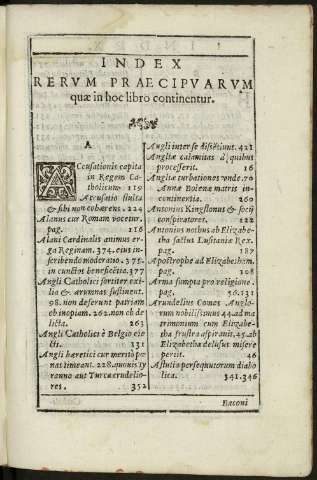 INDEX
RERVM PRAECIPVARVM
quæ in hoc libro continentur.
A
ACcusationis capita
in Regem Ca-
tholicum 119
Accusatio stulta
& sibi non cohærens 224
Alanus cur Romam vocetur.
pag. 116
Alani Cardinalis animus er-
ga Reginam. 374. eius in-
scribendo moderatio. 375.
in cunctos beneficẽtia. 377
Angli Catholici fortiter exi-
lia & ærumnas sustinent.
98. non deserunt patriam
ob inopiam. 262. non ob de
licta. 263
Angli Catholici è Belgio eie-
cti. 131
Angli hæretici cur meritò pœ
nas timeant. 228. quouis ty
ranno aut Turca crudelio-
res. 352
Angli inter se dissẽtiunt. 421
Angliæ calamitas à quibus
processerit. 16
Angliæ turbationes vnde. 70
Annæ Bolenæ matris in-
continentia. 260
Antonius Kingstonus & socij
conspiratores. 122
Antonius nothus ab Elizabe-
tha factus Lusitaniæ Rex.
pag. 187
Apostrophe ad Elizabetham.
pag. 108
Arma sumpta pro religione.
pag. 56. 131
Arundelius Comes Anglo-
rum nobilissimus 44. ad ma
trimonium cum Elizabe-
tha frustra aspirauit. 45. ab
Elizabetha delusus misere
perijt. 46
Astutia persequutorum diabo
lica. 341. 346
Baconi